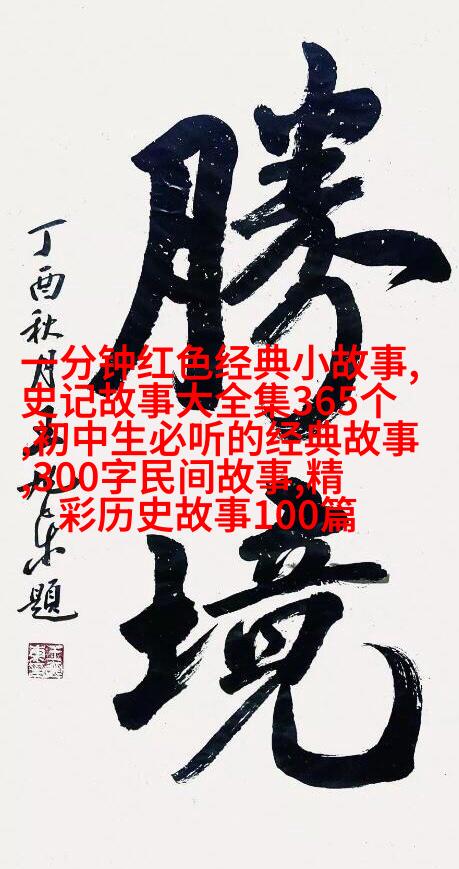 勝境
丁酉秋月
題
一分钟红色经典小故事,
史记故事大全集365个
,初中生必听的经典故事
,300字民间故事,精
彩历史故事100篇